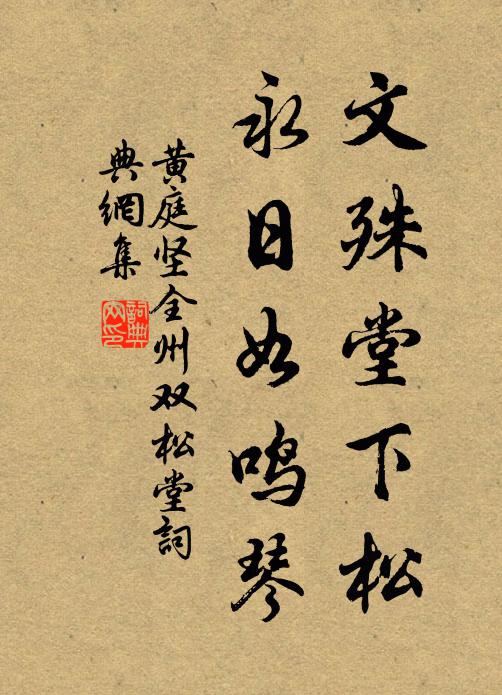 文殊堂下松
永日如鸣琴
黄庭坚全州双松堂詞
典網集
詞典
网印